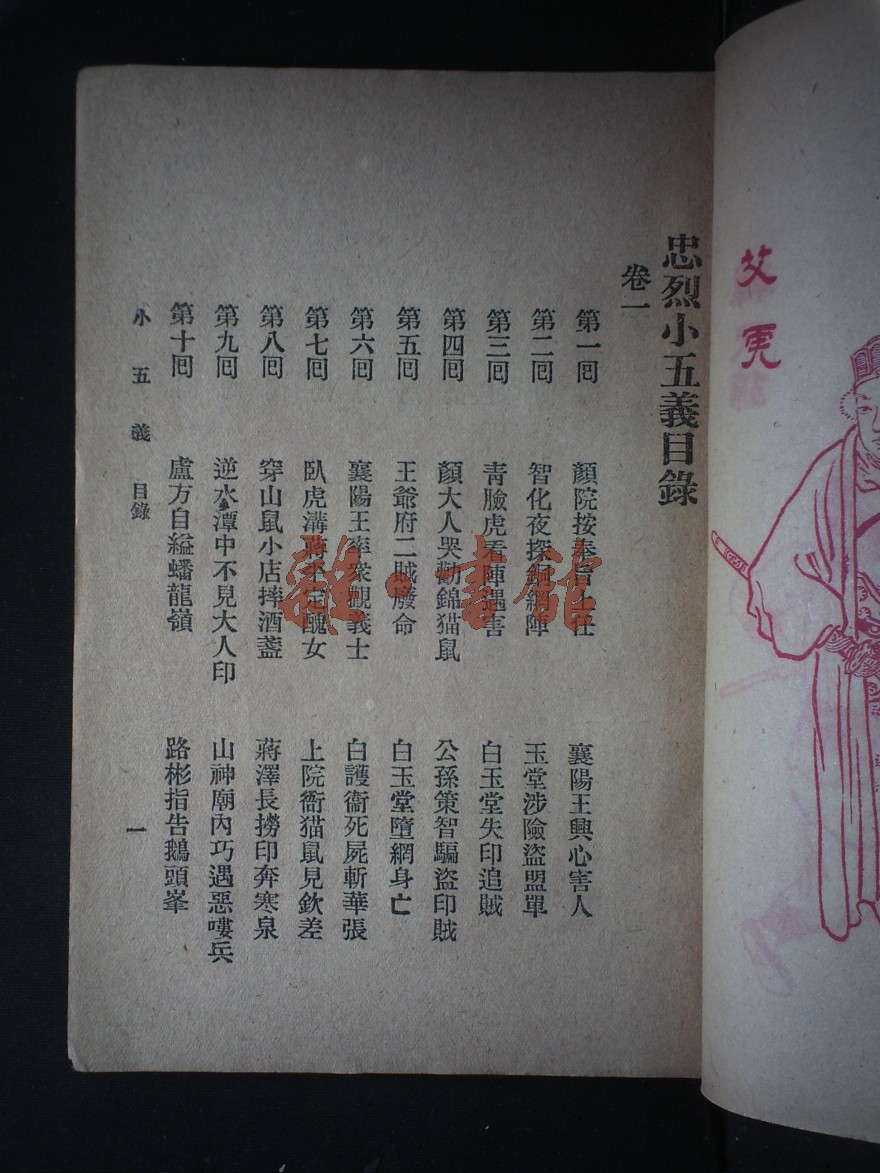 忠烈小五義目錄
卷一
第一回 顏院按奉旨上任 襄陽王興心害人
第二回 智化夜探銅網陣 玉堂涉險盜盟單
第三回 青臉虎看陣遇害 白玉堂失印追賊
第四回 顏大人哭勸錦猫鼠 公孫策智騙盜印賊
第五回 王爺府二賊廢命 白玉堂墮網身亡
第六回 襄陽王率衆觀義士 白護衞死屍斬華張
第七回 臥虎溝蔣平定醜女 上院衙猫鼠見欽差
第八回 穿山鼠小店摔酒盞 蔣澤長撈印奔寒泉
第九回 逆水潭中不見大人印 山神廟內巧遇惡嘍兵
第十回 盧方自縊蟠龍嶺 路彬指告鵝頭峯
小五義 目錄 一
艾虎
雜·書館